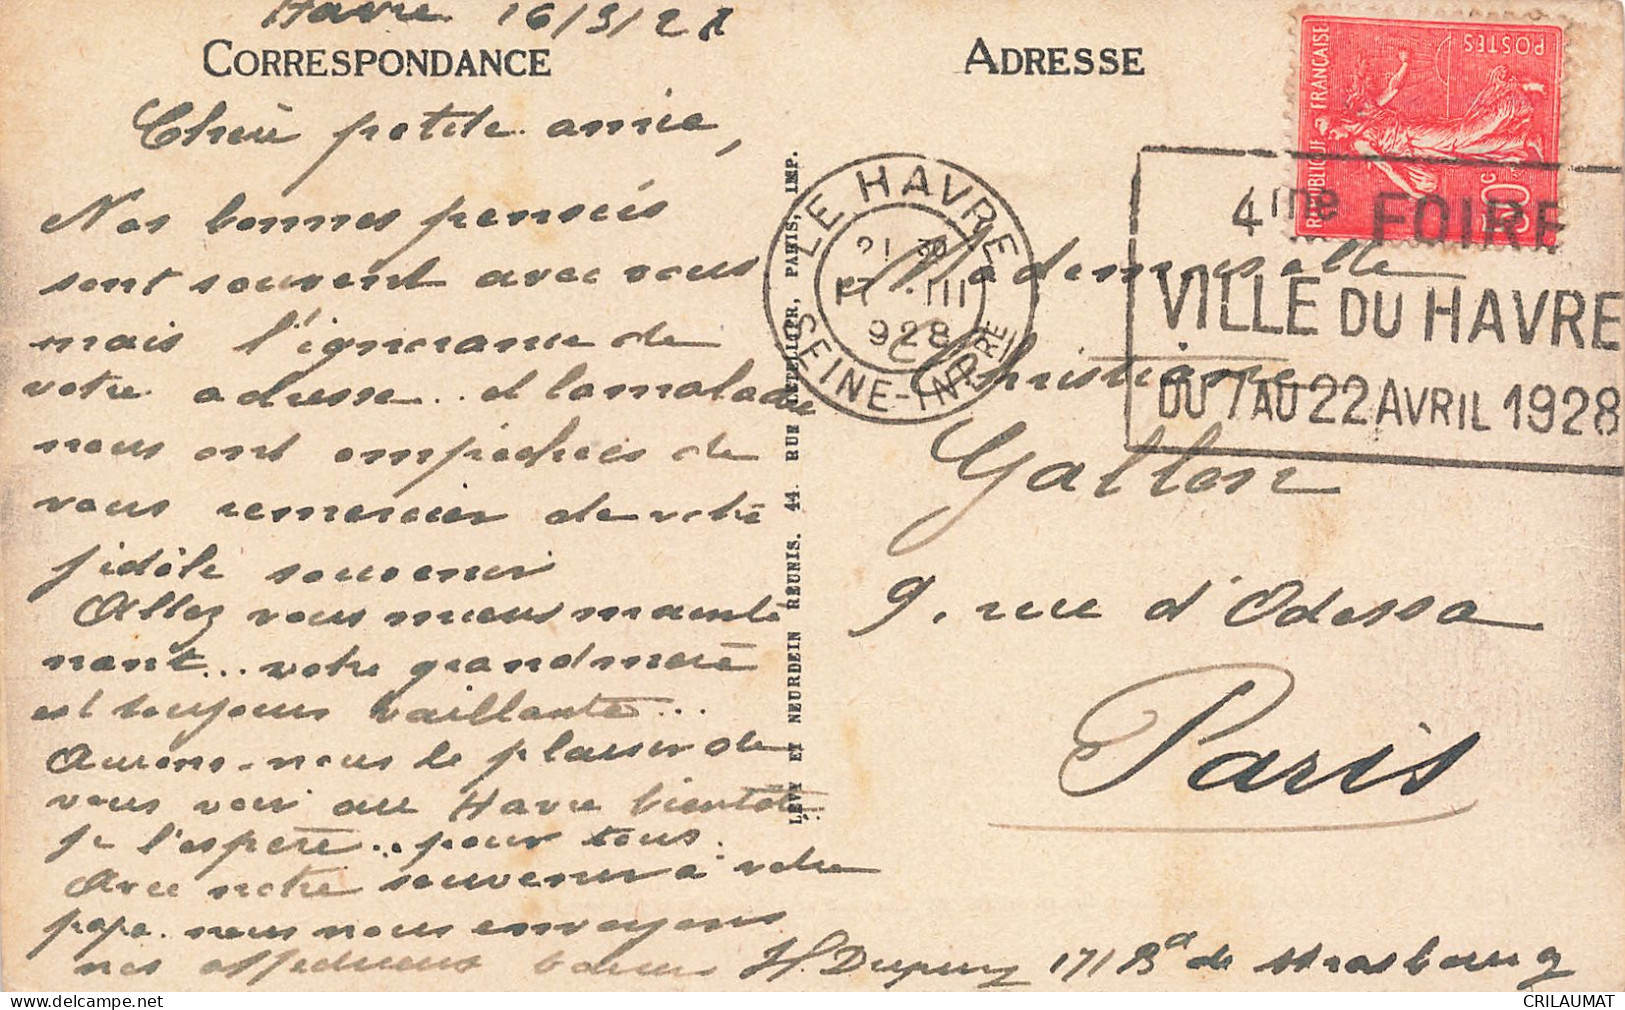 Havre 16/3/28
CORRESPONDANCE
Chère petite amie,
Nos bonnes pensées
sont souvent avec vous
mais l'ignorance de
votre adresse.. et la maladie
nous ont empêchés de
vous remercier de votre
fidèle souvenir
Allez vous mieux mainte
nant... votre grandmère
est toujours vaillante...
Aurons-nous le plaisir de
vous voir au Havre bientôt
je l'espère.. pour tous.
Avec notre souvenir à votre
papa. nous nous envoyons
nos affectueux baisers H. Dupuy 171 Bd de Strasbourg
LEVY ET NEURDEIN REUNIS. 44. RUE LETELLIER, PARIS, IMP.
ADRESSE
REPUBLIQUE FRANÇAISE
POSTES
50 C
LE HAVRE
21 30
17 III
928
SEINE-INFRE
4me FOIRE
VILLE DU HAVRE
DU 7 AU 22 AVRIL 1928
Mademoiselle
Christiane
Gallon
9, rue d'Odessa
Paris
CRILAUMAT